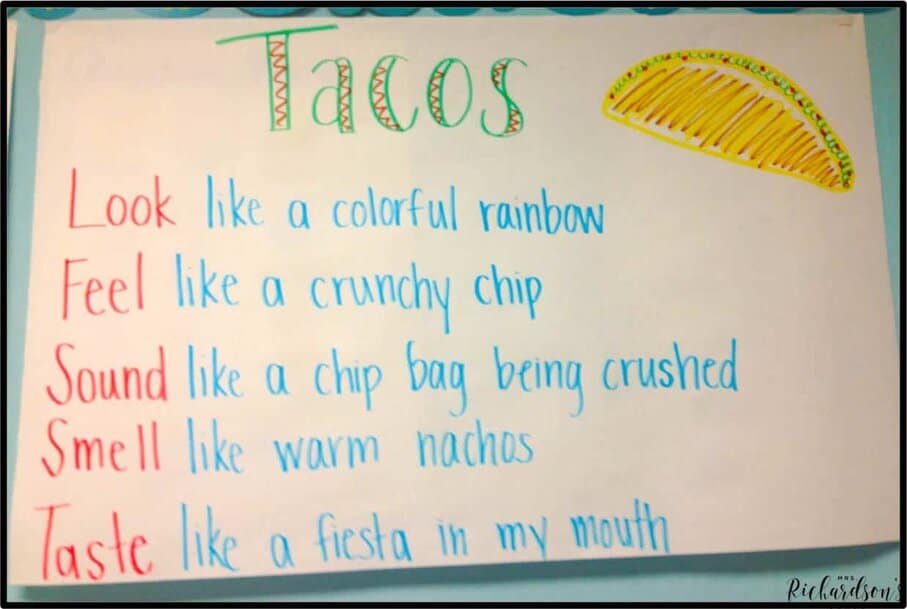 Tacos
Look like a colorful rainbow
Feel like a crunchy chip
Sound like a chip bag being crushed
Smell like warm nachos
Taste like a fiesta in my mouth
MRS.
Richardson's